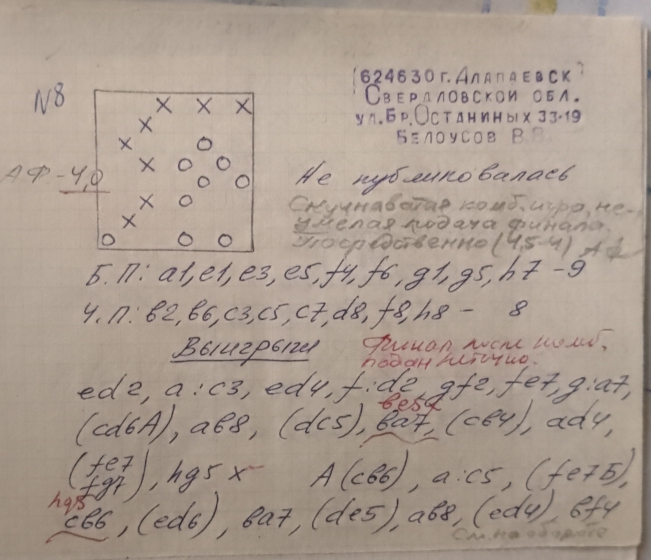 (624630 г. Алапаевск
Свердловской обл.
ул. Бр. Останиных 33-19
Белоусов В.В.
N8
АФ-4,0
Не публиковалась
Скучноватая комб. игра, не-
умелая подача финала.
Посредственно (4,5-4) АФ
Б.П: a1, e1, e3, e5, f4, f6, g1, g5, h7 - 9
Ч.П: в2, в6, c3, c5, c7, d8, f8, h8 - 8
Выигрыш
Финал после комб.
подан нелично.
ed2, a:c3, ed4, f:d2, gf2, fe7, g:a7,
(cd6A), aв8, (dc5), вa7, (cв4), ad4,
(fe7
fg7), hg5 x А(cв6), a:c5, (fe7Б),
hg5
cв6, (ed6), вa7, (de5), aв8, (ed4), вf4
См. на обороте